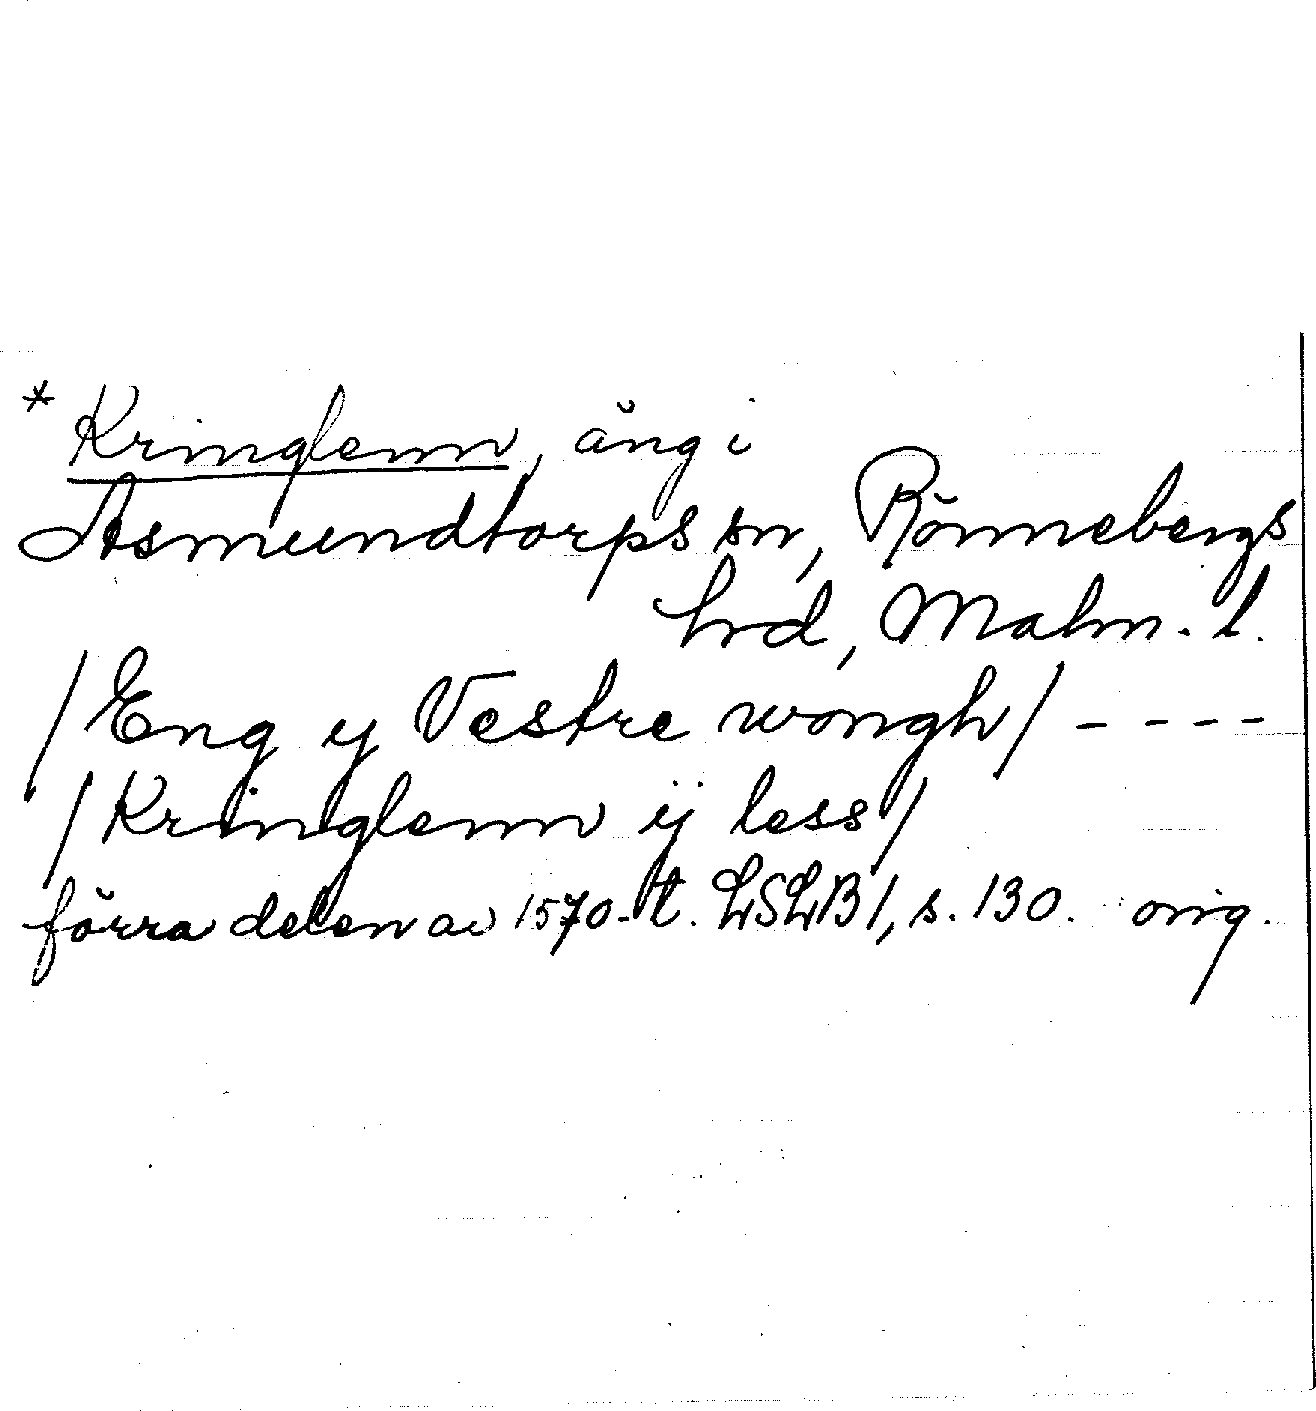 * Kringlenn, äng i
Asmundtorps sn, Rönnebergs
hrd, Malm. l.
/Eng y Vestre wongh/ - - - -
/Kringlenn ij less/
förra delen av 1570-t. LSLB 1, s. 130. orig.